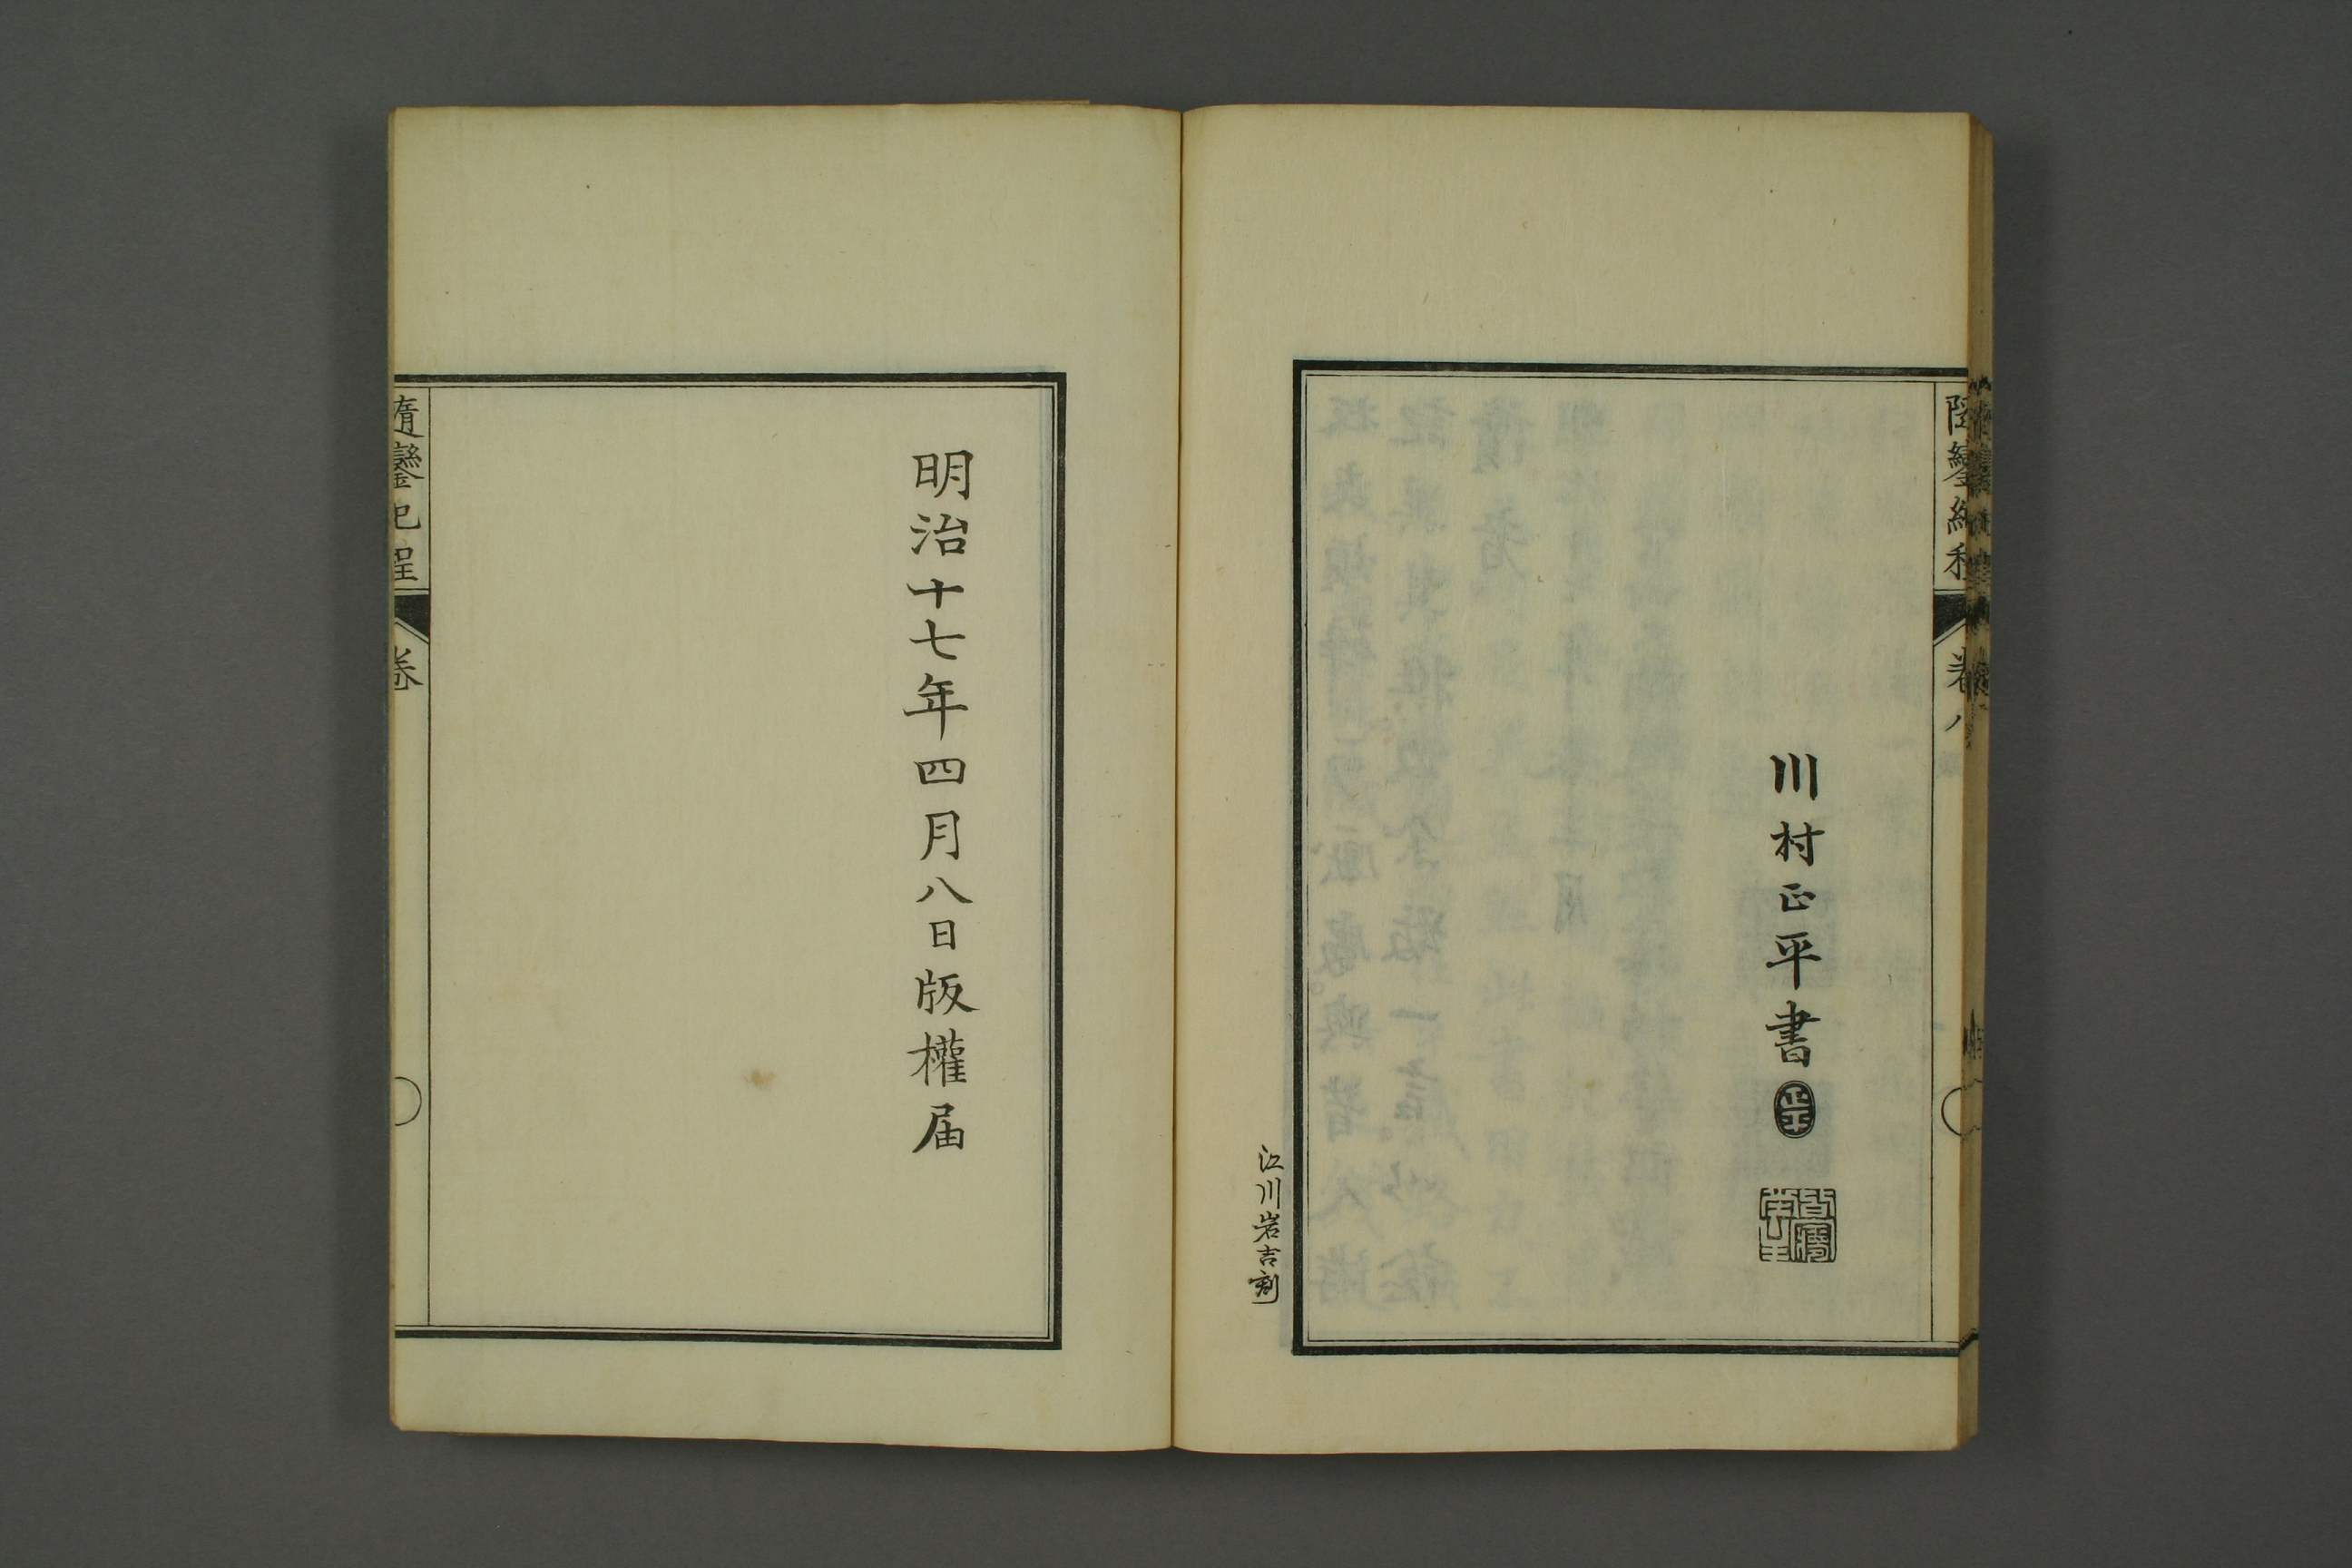 隨鑾紀程
卷八
川村正平書
正平
江川岩吉刻
明治十七年四月八日版權届
隨鑾紀程
卷